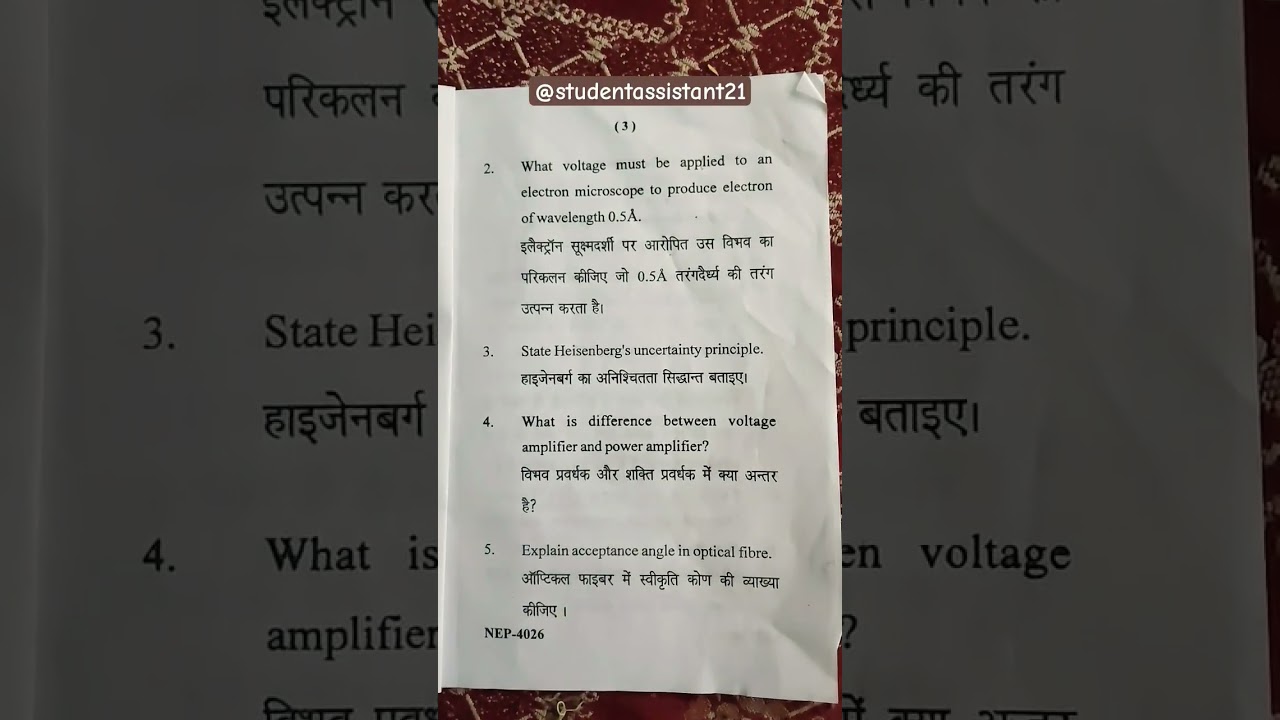 @studentassistant21
(3)
2. What voltage must be applied to an
electron microscope to produce electron
of wavelength 0.5Å.
इलैक्ट्रॉन सूक्ष्मदर्शी पर आरोपित उस विभव का
परिकलन कीजिए जो 0.5Å तरंगदैर्ध्य की तरंग
उत्पन्न करता है।
3. State Heisenberg's uncertainty principle.
हाइजेनबर्ग का अनिश्चितता सिद्धान्त बताइए।
4. What is difference between voltage
amplifier and power amplifier?
विभव प्रवर्धक और शक्ति प्रवर्धक में क्या अन्तर
है?
5. Explain acceptance angle in optical fibre.
ऑप्टिकल फाइबर में स्वीकृति कोण की व्याख्या
कीजिए ।
NEP-4026